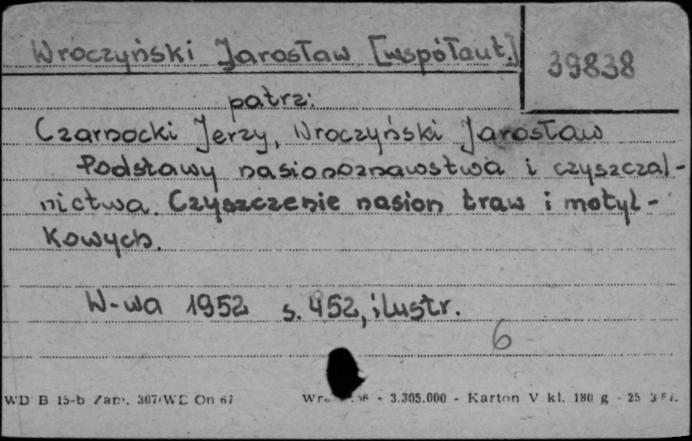 Wroczyński Jarosław [współaut.]
39838
patrz:
Czarnocki Jerzy, Wroczyński Jarosław
Podstawy nasionoznawstwa i czyszczal-
nictwa. Czyszczenie nasion traw i motyl-
kowych.
W-wa 1952 s. 452, ilustr.
6
WD B 15-b Zam. 307/WD On 67
3.305.000 - Karton V kl. 180 g - 25